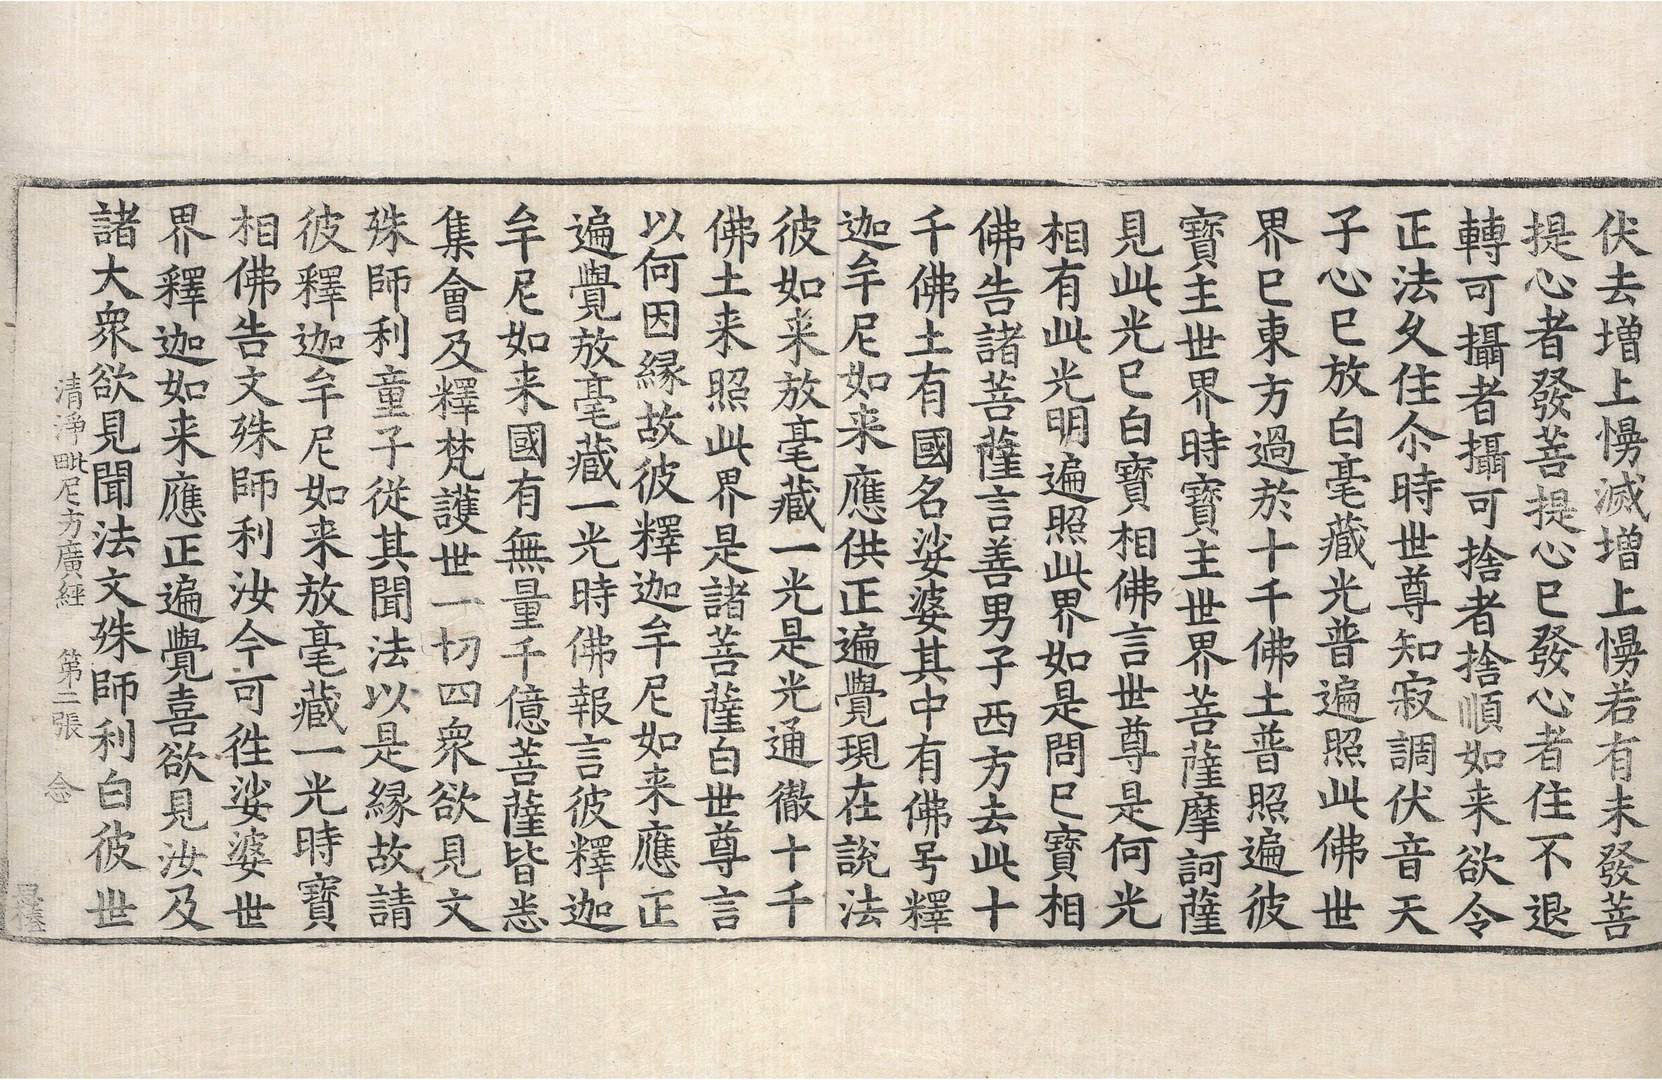 伏去增上慢滅增上慢若有未發菩
提心者發菩提心已發心者住不退
轉可攝者攝可捨者捨順如来欲令
正法久住尒時世尊知寂調伏音天
子心已放白毫藏光普遍照此佛世
界已東方過於十千佛土普照遍彼
寶主世界時寶主世界菩薩摩訶薩
見此光已白寶相佛言世尊是何光
相有此光明遍照此界如是問已寶相
佛告諸菩薩言善男子西方去此十
千佛土有國名娑婆其中有佛号釋
迦牟尼如来應供正遍覺現在說法
彼如来放毫藏一光是光通徹十千
佛土来照此界是諸菩薩白世尊言
以何因縁故彼釋迦牟尼如来應正
遍覺放毫藏一光時佛報言彼釋迦
牟尼如来國有無量千億菩薩皆悉
集會及釋梵護世一切四衆欲見文
殊師利童子從其聞法以是縁故請
彼釋迦牟尼如来放毫藏一光時寶
相佛告文殊師利汝今可徃娑婆世
界釋迦如来應正遍覺喜欲見汝及
諸大衆欲見聞法文殊師利白彼世
清淨毗尼方廣經 第二張 念